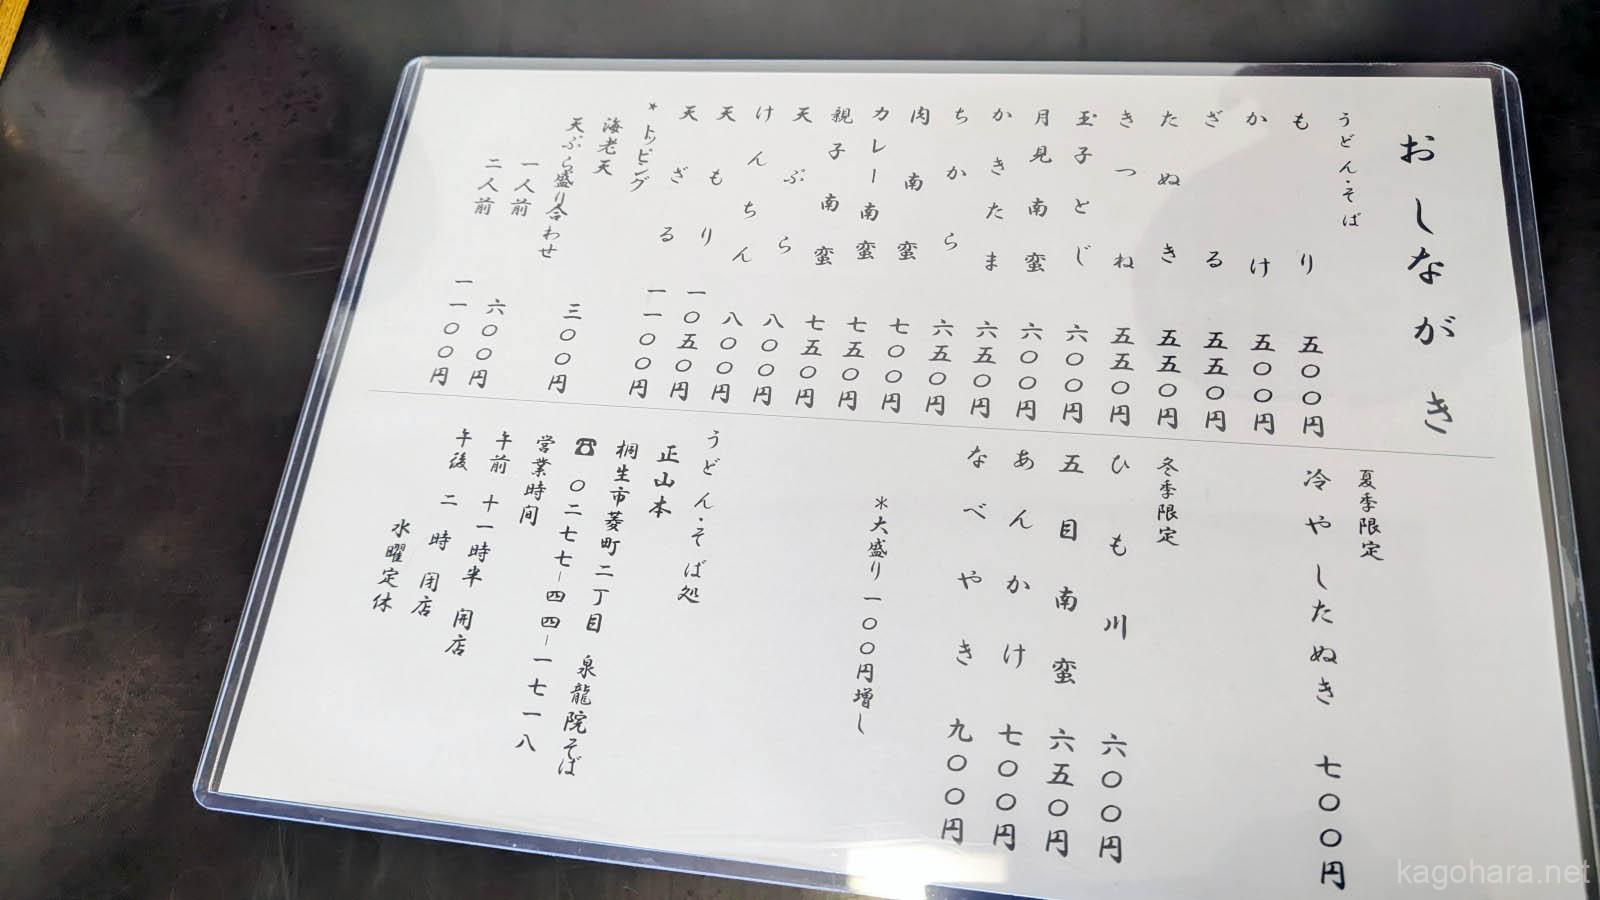 おしながき
うどん・そば
もり 五〇〇円
かけ 五〇〇円
ざる 五五〇円
たぬき 五五〇円
きつね 五五〇円
玉子とじ 六〇〇円
月見南蛮 六〇〇円
かきたま 六五〇円
ちから 六五〇円
肉南蛮 七〇〇円
カレー南蛮 七五〇円
親子南蛮 七五〇円
天ぷら 八〇〇円
けんちん 八〇〇円
天もり 一〇五〇円
天ざる 一一〇〇円
*トッピング
海老天 三〇〇円
天ぷら盛り合わせ
一人前 六〇〇円
二人前 一一〇〇円
夏季限定
冷やしたぬき 七〇〇円
冬季限定
ひも川 六〇〇円
五目南蛮 六五〇円
あんかけ 七〇〇円
なべやき 九〇〇円
*大盛り一〇〇円増し
うどん・そば処
正山本
桐生市菱町二丁目 泉龍院そば
☎ 〇二七七-四四-一七一八
営業時間
午前 十一時半 開店
午後 二時 閉店
水曜定休
kagohara.net